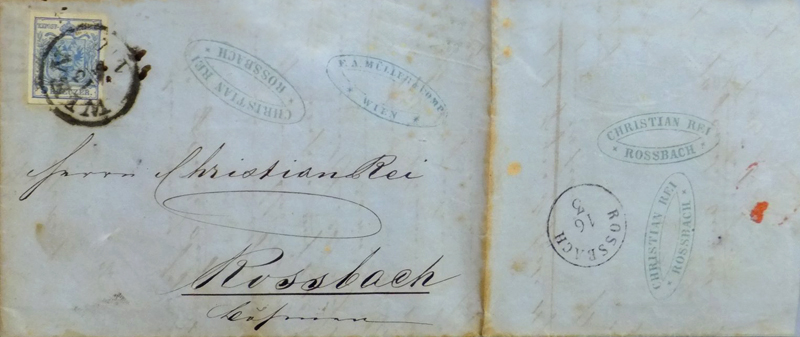 WIEN
CHRISTIAN REI
* ROSSBACH *
F. A. MÜLLER & COMP.
* WIEN *
Herrn Christian Rei
Rossbach
Böhmen
CHRISTIAN REI
* ROSSBACH *
ROSSBACH
16
CHRISTIAN REI
* ROSSBACH *